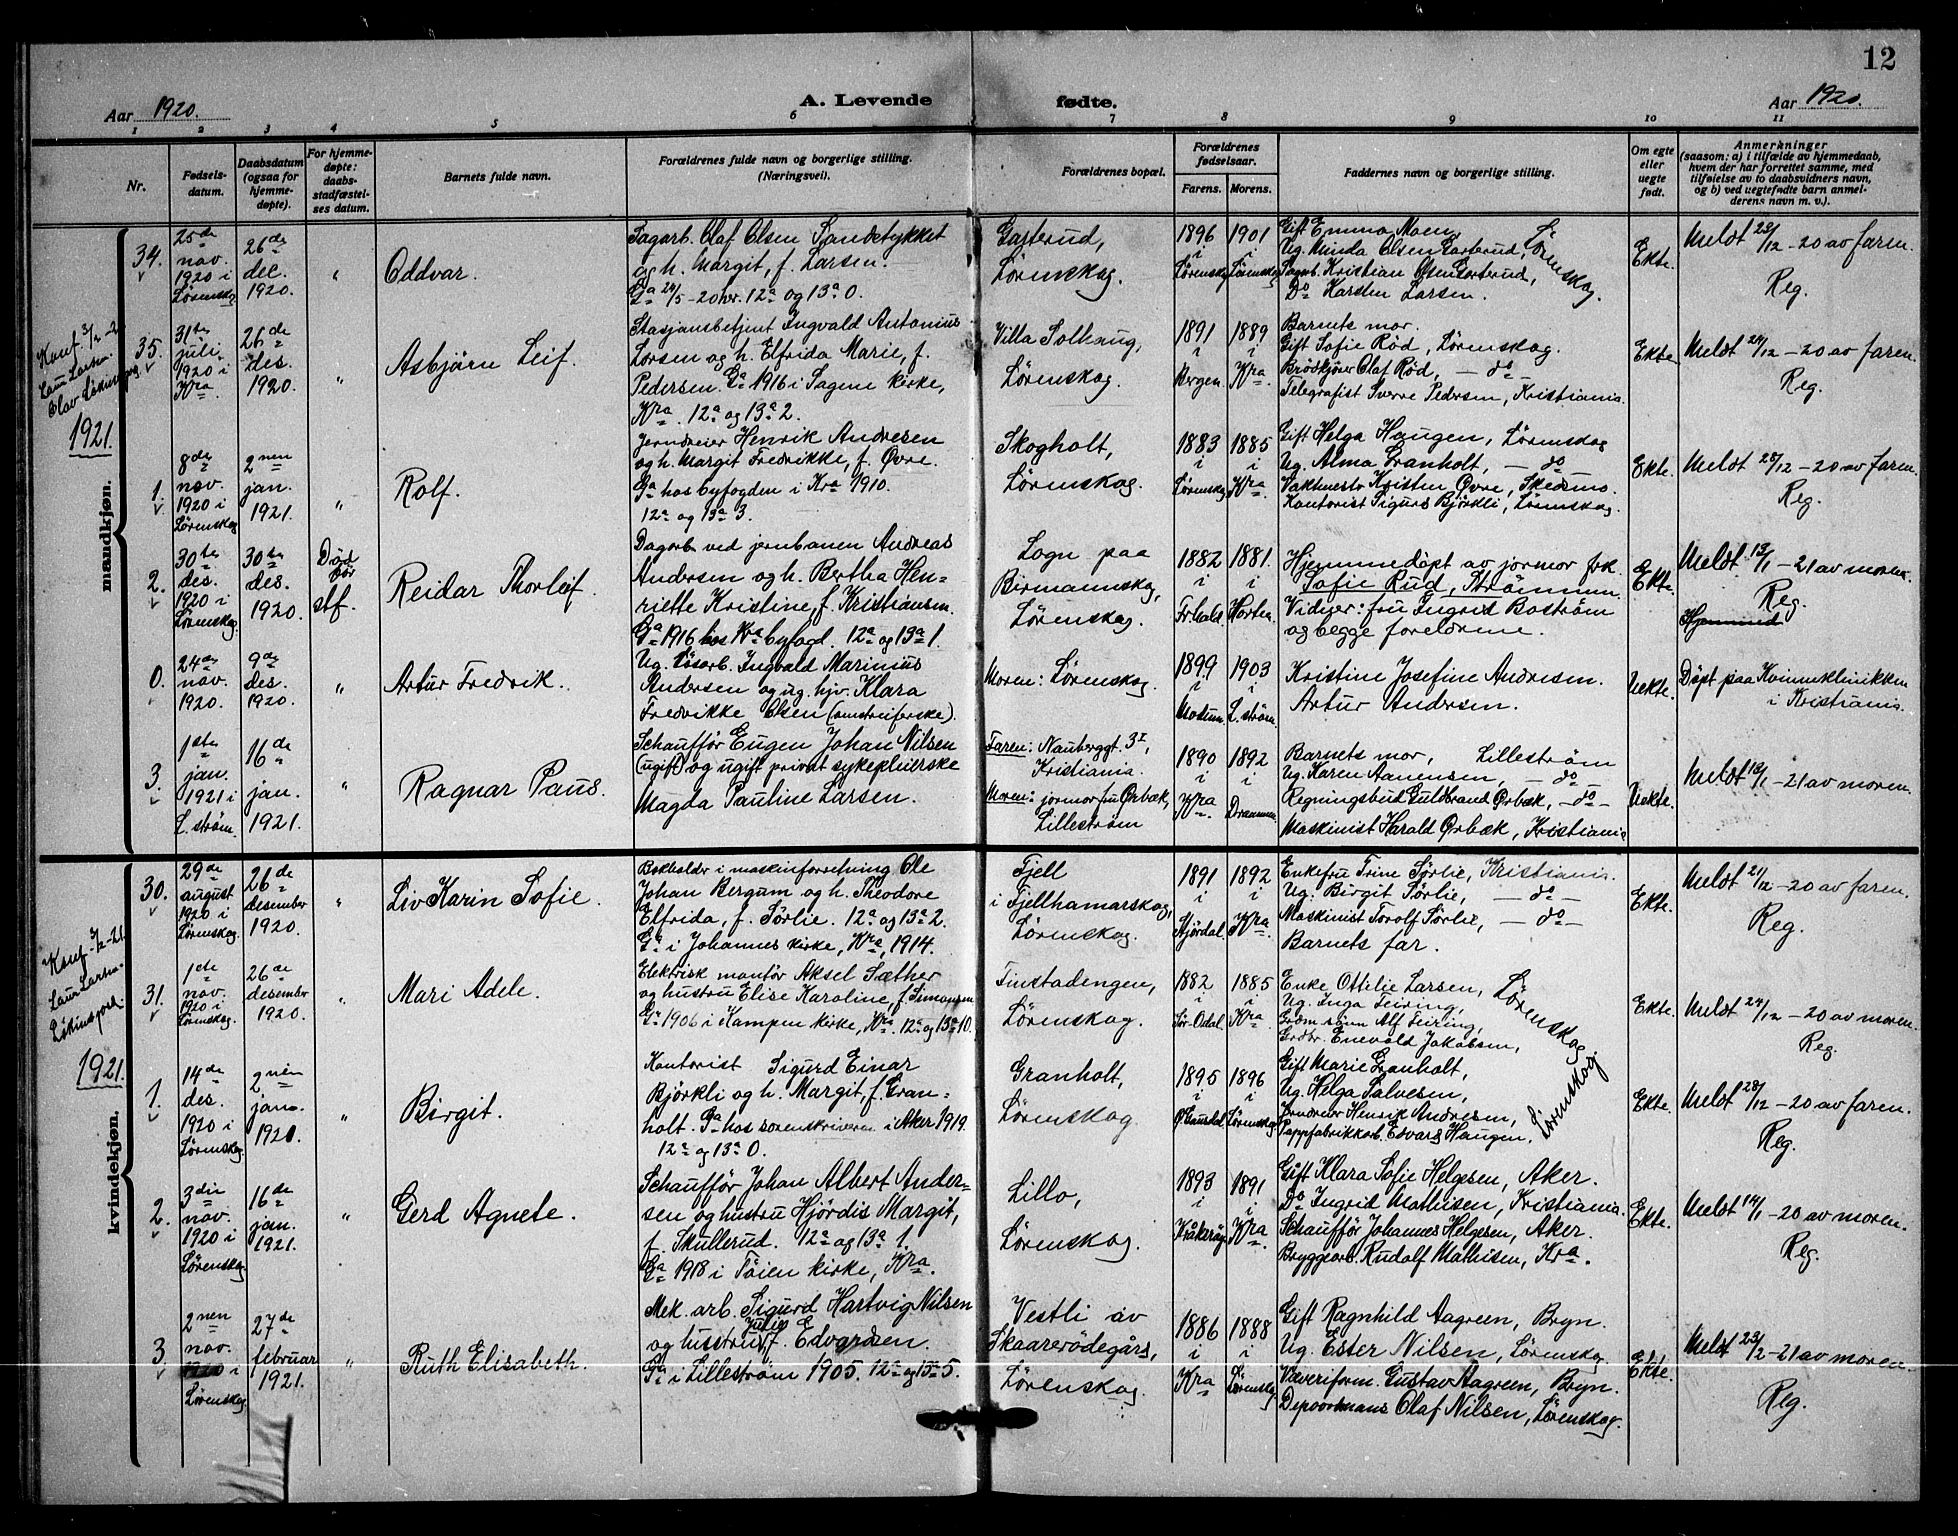 12
Aar 1920.
A. Levende fødte.
Aar 1920.
1 2 3 4 5 6 7 8 9 10 11
Nr.
Fødsels-
datum.
Daabsdatum
(ogsaa for
hjemme-
døpte).
For hjemme-
døpte:
daabs-
stadfæstel-
ses datum.
Barnets fulde navn.
Forældrenes fulde navn og borgerlige stilling.
(Næringsvei).
Forældrenes bopæl.
Forældrenes
fødselsaar.
Farens. Morens.
Faddernes navn og borgerlige stilling.
Om egte
eller
uegte
født.
Anmerkninger
(saasom: a) i tilfælde av hjemmedaab,
hvem der har forrettet samme, med
tilføielse av to daabsvidners navn,
og b) ved uegtefødte barn anmel-
derens navn m. v.).
mandkjøn.
34.
25de
nov.
1920 i
Lørenskog
26de
dec.
1920.
"
Oddvar.
Fagarb. Olaf Olsen Sandstykket
og h. Margit, f. Larsen.
Ga 24/5-20 hr. 12a og 13a 0.
Gasterud,
Lørenskog.
1896
i
Lørenskog
1901
i
Lørenskog
Gift Emma Moen,
Ug. Minda Olsen Gasterud,
Fagarb. Kristian Olsen Gasterud,
Do Karsten Larsen.
Lørenskog.
Ekte.
Meldt 22/12-20 av faren.
Reg.
Konf. 3/2-21
Laur. Larsen
Olav
35.
31te
juli
1920 i
Kra.
26de
des.
1920.
"
Asbjørn Leif.
Stasjonsbetjent Ingvald Antonius
Larsen og h. Elfrida Marie, f.
Pedersen. Ga 1916 i Sagene kirke,
Kra. 12a og 13a 2.
Villa Solhaug,
Lørenskog.
1891
i
Bergen.
1889
i
Kra.
Barnets mor.
Gift Sofie Rød, Lørenskog.
Brødkjører Olaf Rød, — do —
Telegrafist Sverre Pedersen, Kristiania.
Ekte
Meldt 24/12-20 av faren.
Reg.
1921.
1.
8de
nov.
1920 i
Lørenskog
2nen
jan.
1921.
"
Rolf.
Jerndreier Henrik Andresen
og h. Margit Fredrikke, f. Øvre.
Ga hos byfogden i Kra 1910.
12a og 13a 3.
Skogholt,
Lørenskog.
1883
i
Lørenskog
1885
i
Kra.
Gift Helga Haugen, Lørenskog
Ug. Alma Granholt, — do
Vaktmestr Kristen Øvre, Skedsmo.
Kontorist Sigurd Bjørkli, Lørenskog.
Ekte
Meldt 28/12-20 av faren.
Reg.
2.
30te
des.
1920 i
Lørenskog.
30te
des.
1920.
Død
før
stf.
Reidar Thorleif.
Dagarb. ved jernbanen Andreas
Andersen og h. Bertha Hen-
riette Kristine, f. Kristiansen.
Ga 1916 hos Kra byfogd. 12a og 13a 1.
Sogn paa
Birmannskog,
Lørenskog.
1882
i
Fr.hald
1881.
i
Horten.
Hjemmedøpt av jormor frk.
Sofie Rud, Strømmen.
Vidner: fru Ingrid Bostrøm
og begge foreldrene.
Ekte.
Meldt 13/1-21 av moren.
Reg.
0.
24de
nov.
1920.
9de
des.
1920.
"
Artur Fredrik.
Ug. løsarb. Ingvald Marinius
Andersen og ug. hjv. Klara
Fredrikke Olsen (omstreiferske).
Moren: Lørenskog.
1899
i
Modum.
1903
i
L.strøm.
Kristine Josefine Andresen.
Artur Andersen.
Uekte.
Døpt paa Kvinneklinikken
i Kristiania.
3.
1ste
jan.
1921 i
L.strøm.
16de
jan.
1921.
"
Ragnar Paus.
Schauffør Eugen Johan Nilsen
(ugift) og ugift privat sykepleierske
Magda Pauline Larsen.
Faren: Nauberggt. 3I,
Kristiania.
Moren: jormor fru Ørbæk,
Lillestrøm
1890
i
Kra.
1892
i
Drammen.
Barnets mor, Lillestrøm
Ug. Karen Aanensen, — do —
Regningsbud Guldbrand Ørbæk, — do —
Maskinist Harald Ørbæk, Kristiania
Uekte.
Meldt 10/1-21 av moren.
kvindekjøn.
30.
29de
august
1920 i
Lørenskog.
26de
desember
1920.
"
Liv Karin Sofie.
Bokholder i maskinforretning Ole
Johan Bergum og h. Theodore
Elfrida, f. Sørlie. 12a og 13a 2.
Ga i Johannes kirke, Kra, 1914.
Fjell
i Fjellhamarskog,
Lørenskog.
1891
i
Stjørdal.
1892
i
Kra.
Enkefru Trine Sørlie, Kristiania.
Ug. Birgit Sørlie, — do —
Maskinist Torolf Sørlie, — do —
Barnets far.
Ekte.
Meldt 21/12-20 av faren.
Reg.
Konf. 3/2-21.
Laur. Larsen
31.
1ste
nov.
1920 i
Lørenskog.
26de
desember
1920.
"
Mari Adele.
Elektrisk montør Aksel Sæther
og hustru Elise Karoline, f. Simonsen.
Ga 1906 i Kampen kirke, Kra. 12a og 13a 10.
Finstadengen,
Lørenskog.
1882
i
Sør-Odal.
1885
i
Kra.
Enke Ottilie Larsen,
Ug. Inga Feiring,
Grdm.sønn Alf Feiring,
Grdbr. Enevald Jakobsen,
Lørenskog
Ekte.
Meldt 24/12-20 av moren.
Reg.
1921.
1.
14de
des.
1920 i
Lørenskog.
2nen
jan.
1921.
"
Birgit.
Kontorist Sigurd Einar
Bjørkli og h. Margit, f. Gran-
holt. Ga hos sorenskriveren i Aker 1919.
12a og 13a 0.
Granholt,
Lørenskog
1895
i
Ø. Gausdal
1896
i
Lørenskog
Gift Marie Granholt,
Ug. Helga Salvesen,
Jerndreier Henrik Andresen,
Pappfabrikkarb. Edvard Haugen,
Lørenskog.
Ekte.
Meldt 28/12-20 av faren.
Reg.
2.
3die
nov.
1920 i
Lørenskog
16de
jan.
1921.
"
Gerd Agnete.
Schauffør Johan Albert Ander-
sen og hustru Hjørdis Margit,
f. Skullerud. 12a og 13a 1.
Ga 1918 i Tøien kirke, Kra.
Lillo,
Lørenskog.
1893
i
Kråkerøy
1891
i
Kra
Gift Klara Sofie Helgesen, Aker.
Do Ingrid Mathisen, Kristiania.
Schauffør Johannes Helgesen, Aker.
Bryggearb. Rudolf Mathisen, Kra.
Ekte.
Meldt 14/1-20 av moren.
Reg.
3.
2nen
nov.
1920 i
Lørenskog
27de
februar
1921.
"
Ruth Elisabeth.
Mek. arb. Sigurd Hartvig Nilsen
og hustru Julie, f. Edvardsen.
Ga i Lillestrøm 1905. 12a og 13a 5.
Vestli av
Skaarerødegård,
Lørenskog.
1886
i
Kra
1888
i
Lørenskog
Gift Ragnhild Aagreen, Bryn.
Ug. Ester Nilsen, Lørenskog
Væveriform. Gustav Aagreen, Bryn.
Olaf Nilsen, Lørenskog.
Ekte.
Meldt 23/2-21 av moren.
Reg.